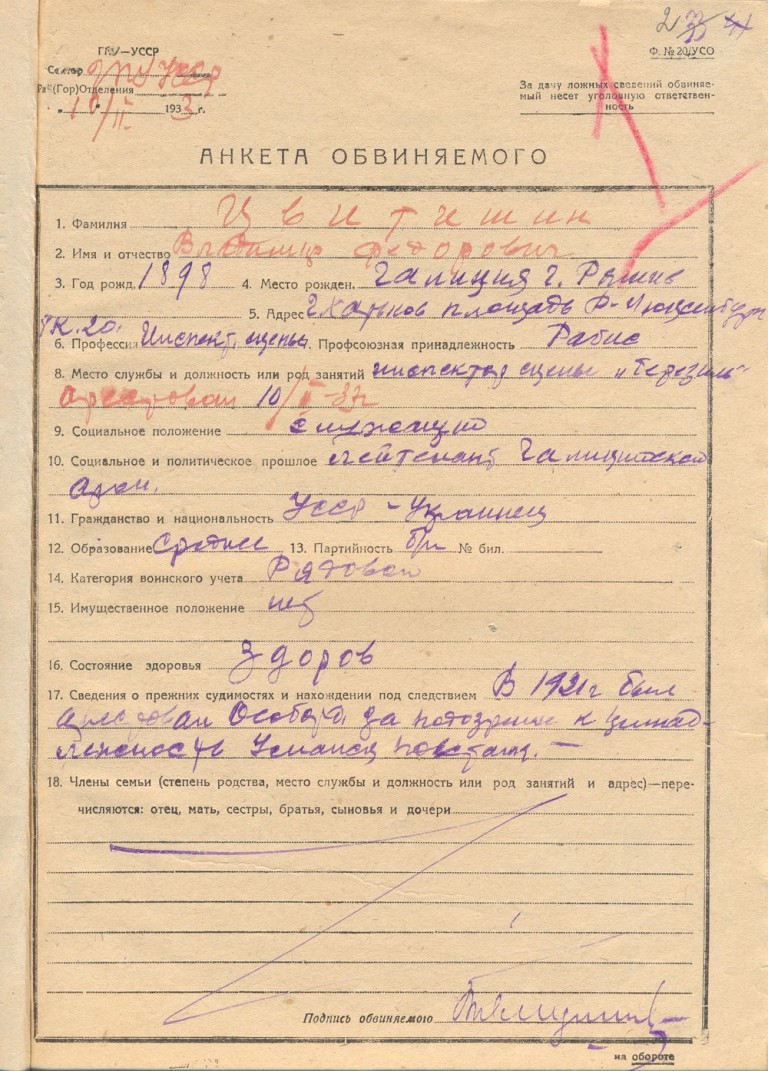 2
ГПУ—УССР
Ф. № 20/УСО
Сектор ГПУ УССР
Рай(Гор)Отделения
10/II 1933 г.
За дачу ложных сведений обвиняе-
мый несет уголовную ответствен-
ность
АНКЕТА ОБВИНЯЕМОГО
1. Фамилия Цвитишин
2. Имя и отчество Владимир Федорович
3. Год рожд. 1898 4. Место рожден. Галиция г. Ряшив
5. Адрес г. Харьков площадь Р-Люксембург
К. 20.
6. Профессия Инспект. сцены 7. Профсоюзная принадлежность Рабис
8. Место службы и должность или род занятий инспектор сцены „Березиль"
арестован 10/II-33 г
9. Социальное положение служащий
10. Социальное и политическое прошлое лейтенант Галицийской
арм.
11. Гражданство и национальность УССР - Украинец
12. Образование среднее 13. Партийность б/п № бил.
14. Категория воинского учета Рядовой
15. Имущественное положение нет
16. Состояние здоровья здоров
17. Сведения о прежних судимостях и нахождении под следствием В 1921 г был
арестован Особотд. за подозрение к принад-
лежность повстанц. —
18. Члены семьи (степень родства, место службы и должность или род занятий и адрес)—пере-
числяются: отец, мать, сестры, братья, сыновья и дочери
Подпись обвиняемою
на обороте